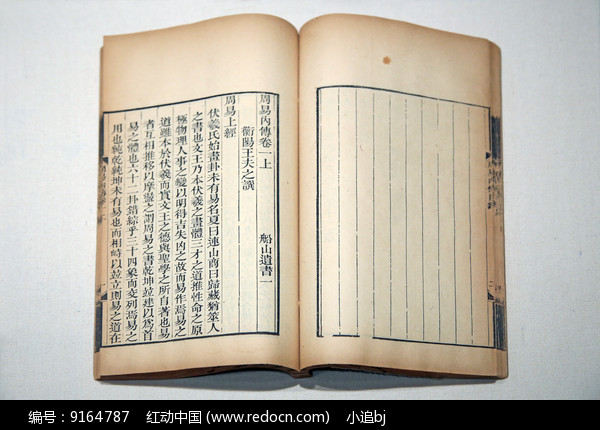 周易內傳卷一上
船山遺書一
衡陽王夫之譔
周易上經
伏羲氏始畫卦未有易名夏曰連山商曰歸藏猶筮人
之書也文王乃本伏羲之畫體三才之道推性命之原
極物理人事之變以明得吉失凶之故而易作焉易之
道雖本於伏羲而實文王之德與聖學之所自著也易
者互相推移以摩盪之謂周易之書乾坤竝建以爲首
易之體也六十二卦錯綜乎三十四象而交列焉易之
用也純乾純坤未有易也而相峙以竝立則易之道在
编号：9164787 红动中国 (www.redocn.com) 小追bj